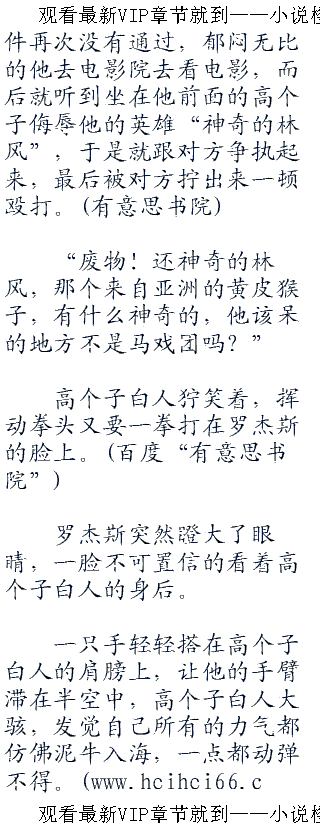 观看最新VIP章节就到——小说检
件再次没有通过，郁闷无比
的他去电影院去看电影，而
后就听到坐在他前面的高个
子侮辱他的英雄“神奇的林
风”，于是就跟对方争执起
来，最后被对方拧出来一顿
殴打。(有意思书院)
“废物！还神奇的林
风，那个来自亚洲的黄皮猴
子，有什么神奇的，他该呆
的地方不是马戏团吗？”
高个子白人狞笑着，挥
动拳头又要一拳打在罗杰斯
的脸上。(百度“有意思书
院”)
罗杰斯突然瞪大了眼
睛，一脸不可置信的看着高
个子白人的身后。
一只手轻轻搭在高个子
白人的肩膀上，让他的手臂
滞在半空中，高个子白人大
骇，发觉自己所有的力气都
仿佛泥牛入海，一点都动弹
不得。(www.hcihci66.c
观看最新VIP章节就到——小说检